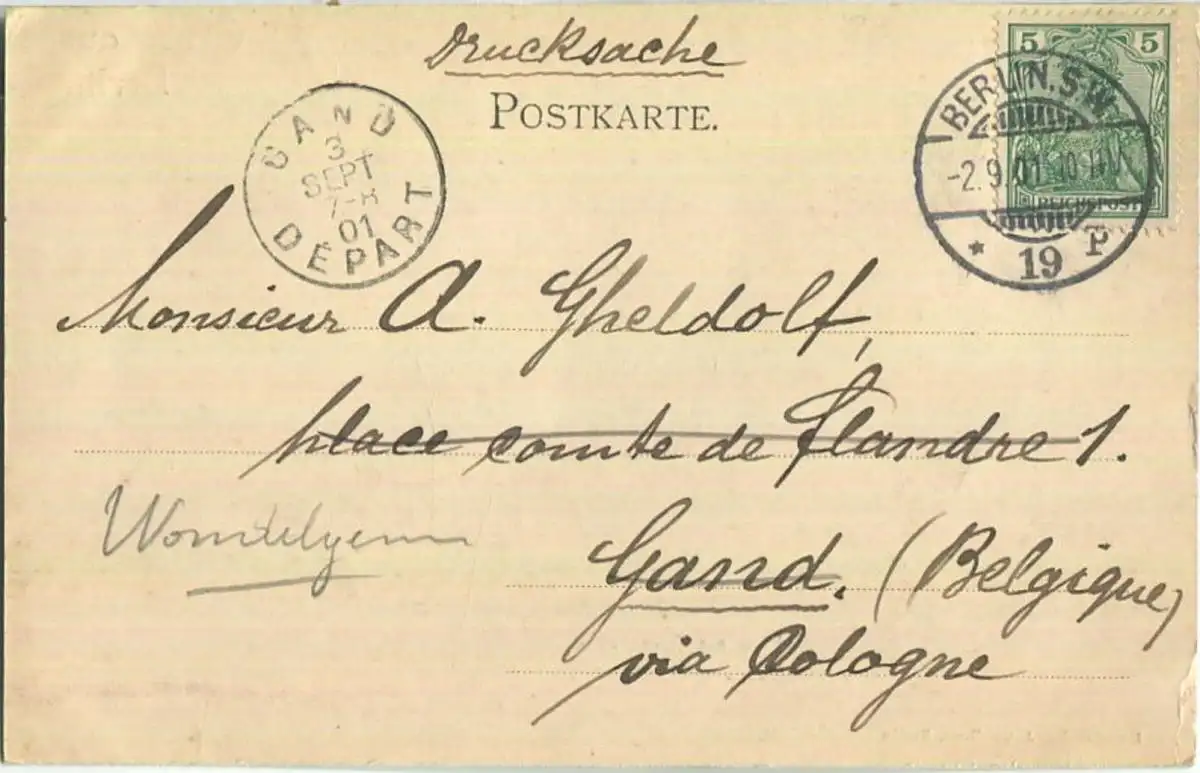 Drucksache
POSTKARTE.
5 5
REICHSPOST
BERLIN. S.W.
-2.9.01. 10-11V.
* 19 P
GAND
3
SEPT
7-8
01
DÉPART
Monsieur A. Gheldolf,
place comte de flandre 1.
Wondelgem
Gand. (Belgique)
via Cologne